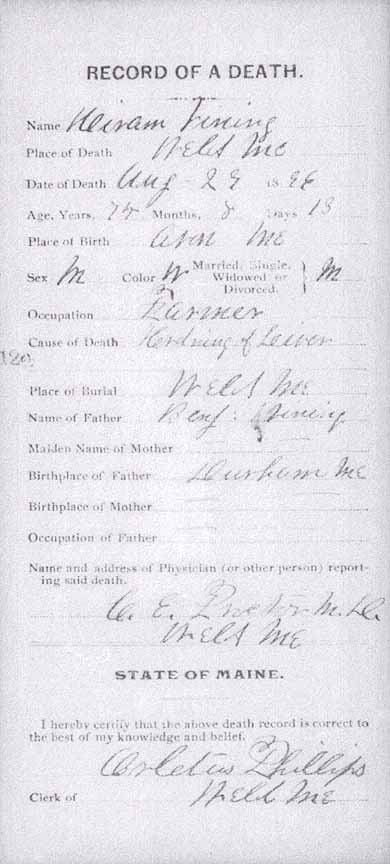 RECORD OF A DEATH.
Name Hiram Vining
Place of Death Weld Me
Date of Death Aug - 29 1896
Age, Years, Months, 8 Days 13
Place of Birth Avon Me
Sex M Color W Married, Single, Widowed or Divorced. } M
Occupation Farmer
Cause of Death Hardning of Liver
Place of Burial Weld Me
Name of Father Benj. Vining
Maiden Name of Mother
Birthplace of Father Durham Me
Birthplace of Mother
Occupation of Father
Name and address of Physician (or other person) report-
ing said death.
C. E. Proctor M.D.
Weld Me
STATE OF MAINE.
I hereby certify that the above death record is correct to
the best of my knowledge and belief.
Phillips
Clerk of Weld Me